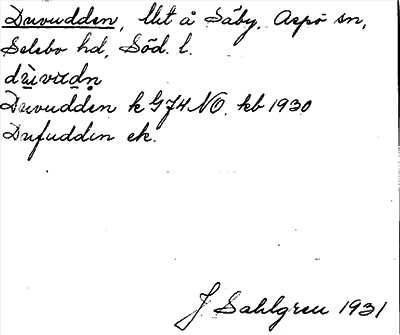 Duvudden, lht å Säby, Aspö sn,
Selebo hd, Söd. l.
Duvudden k G74 NO. kb 1930
Dufudden ek.
J Sahlgren 1931